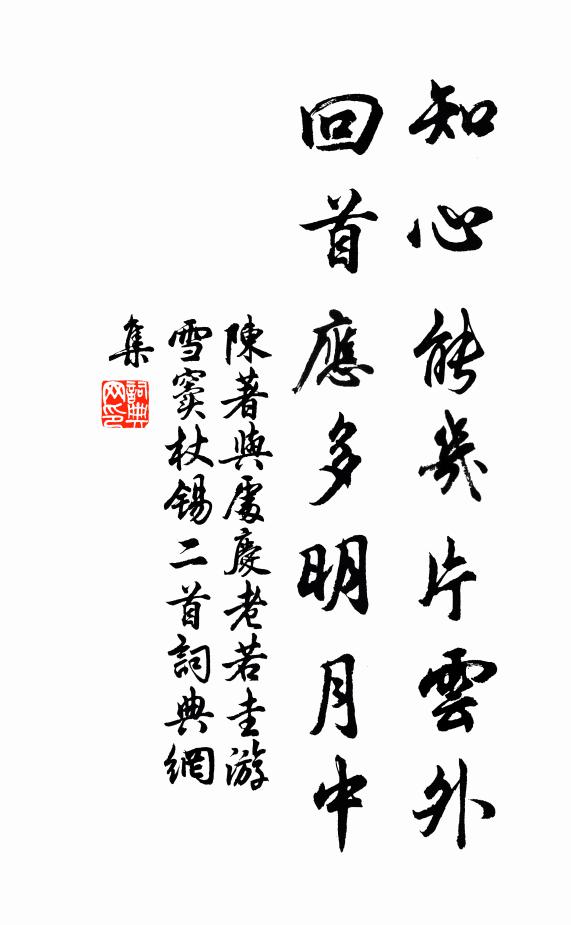 知心能幾片雲外
回首應多明月中
陳著與處慶老若圭游
雪竇杖锡二首詞典網
集
詞典网印